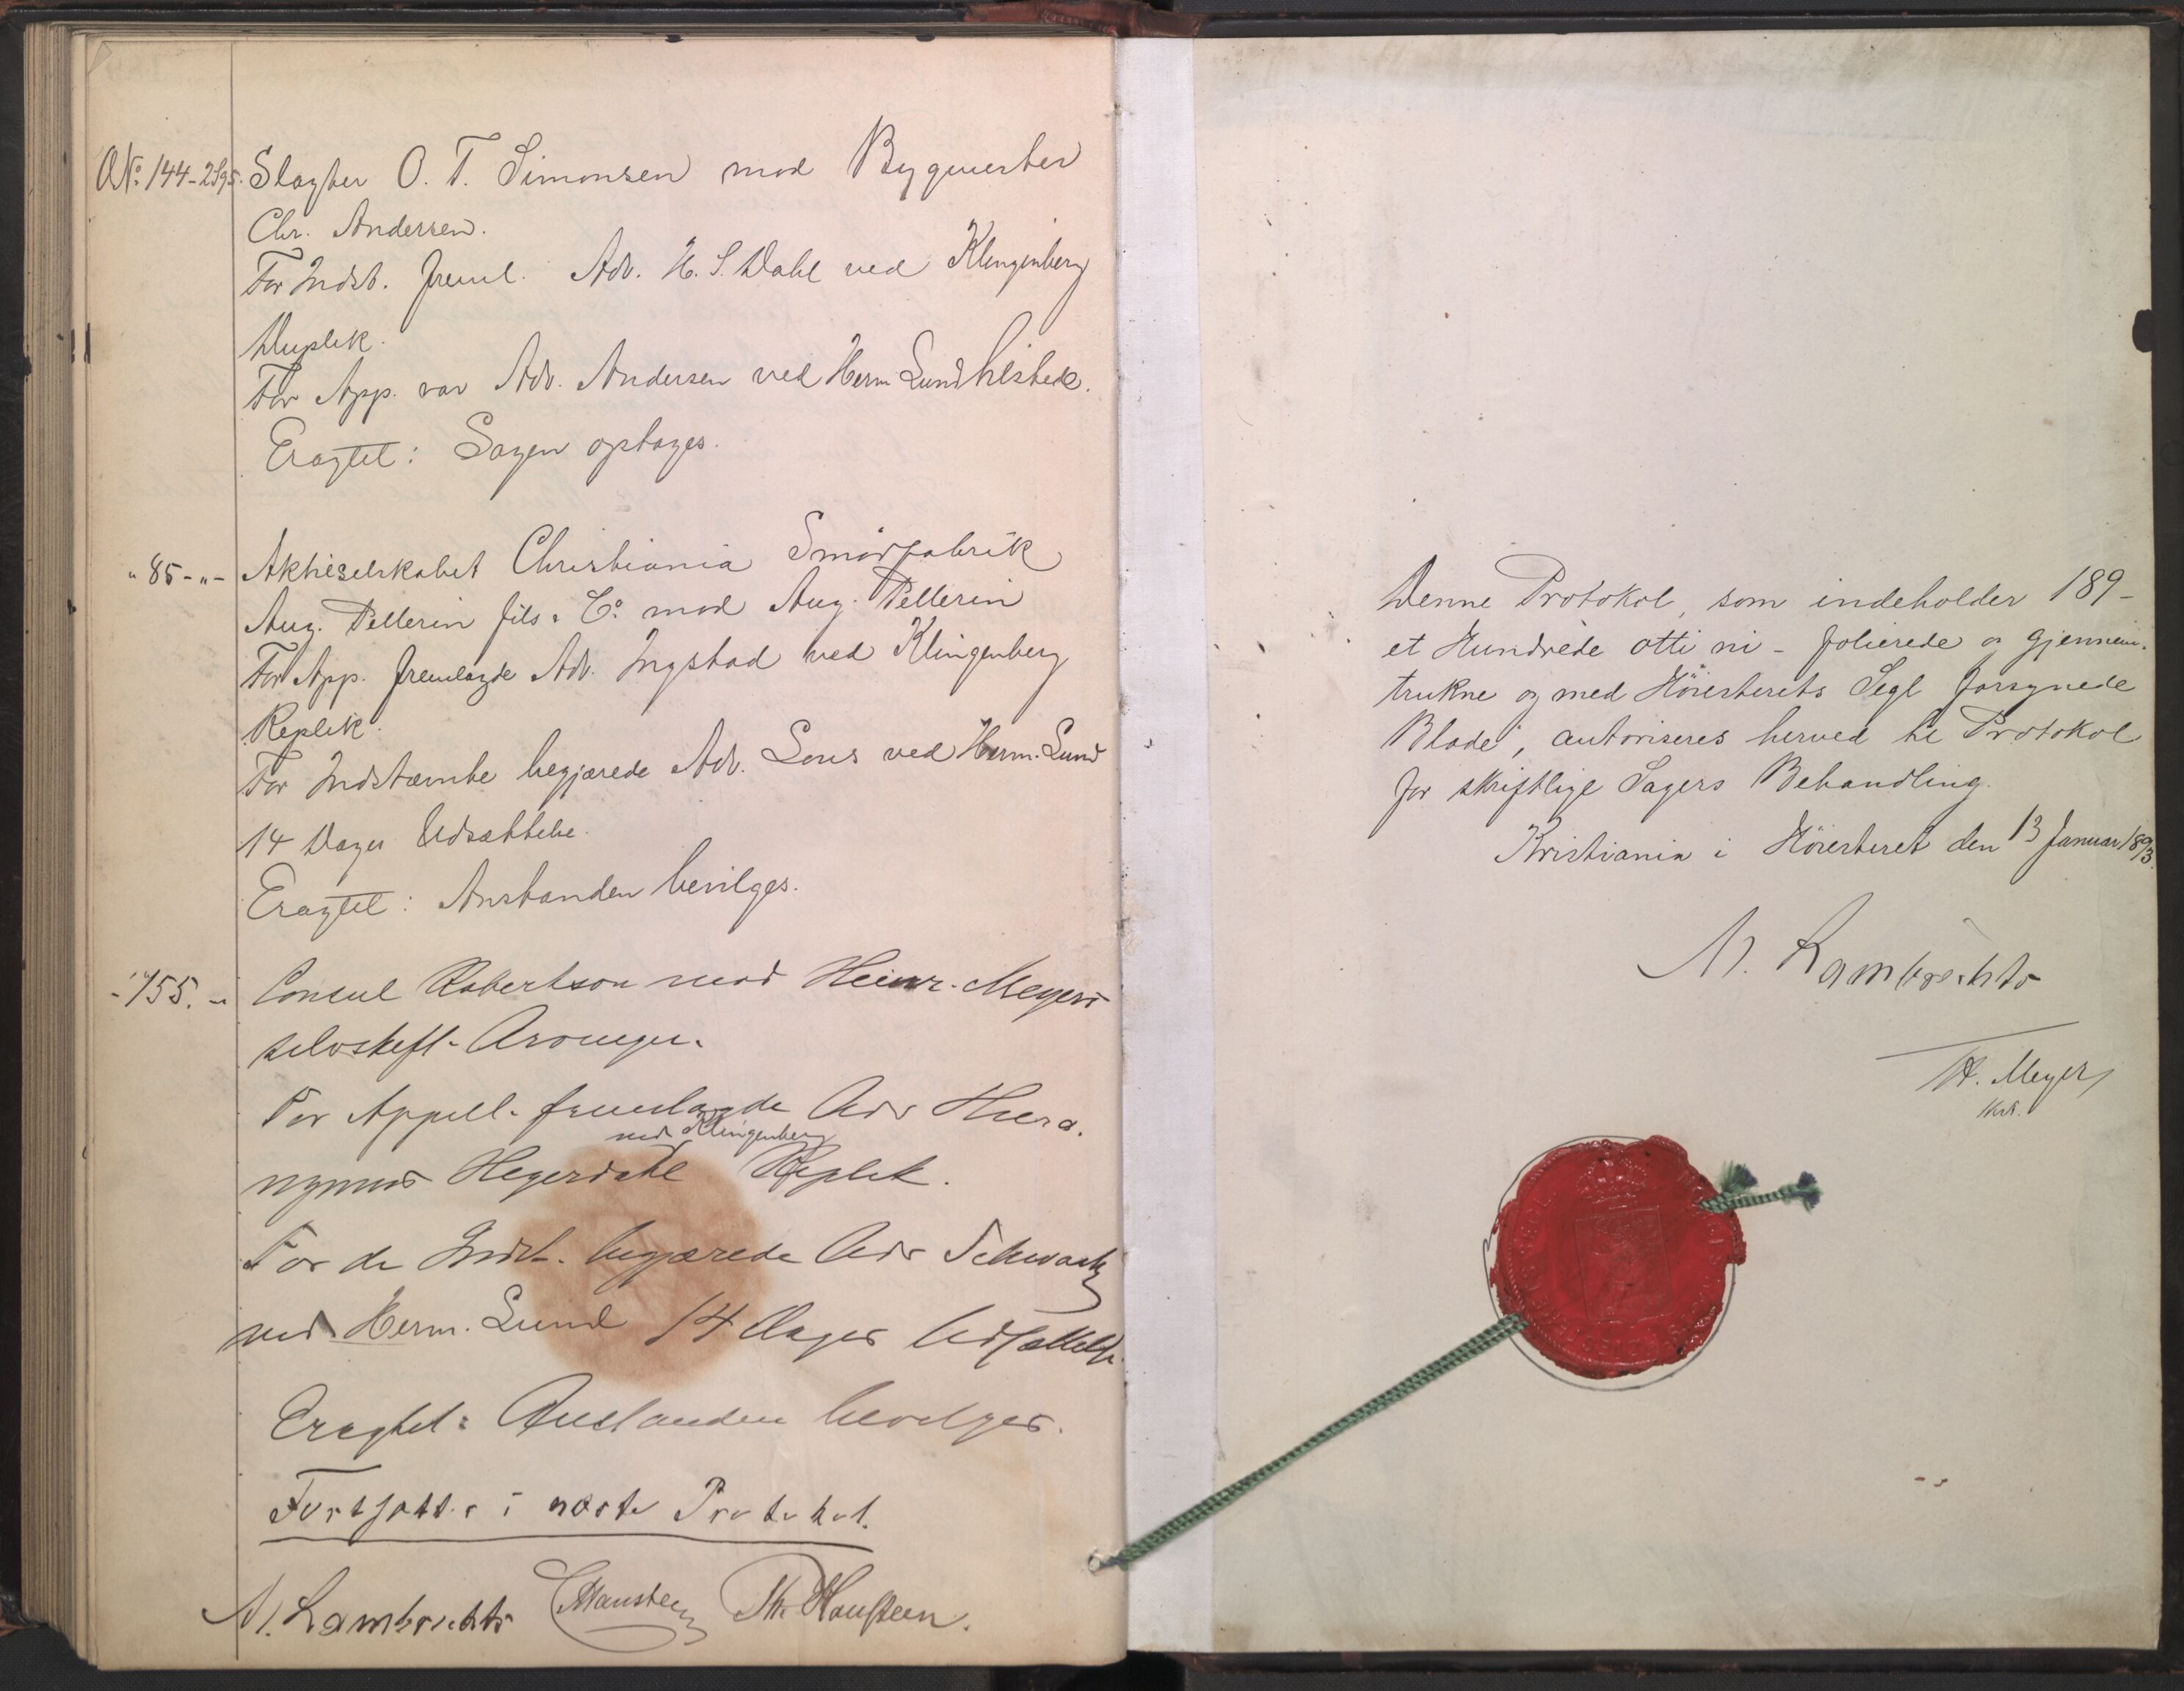 No. 144-2S95. Slagter O. T. Simonsen mod Bygmester
Chr. Andersen.
For Indst. freml. Adv. H. S. Dahl ved Klingenberg
Duplik.
For App. var Adv. Andersen ved Herm Lund tilstede.
Eragtet: Sagen optages.
" 85 - " - Aktieselskabet Christiania Smörfabrik
Aug. Pellerin fils & Co. mod Aug. Pellerin
For App. fremlagde Adv. Ingstad ved Klingenberg
Replik.
For Indstævnte begjærede Adv. Lous ved Herm. Lund
14 Dages Udsættelse.
Eragtet: Anstanden bevilges.
- 155. - Consul Robertson mod Heinr. Meyers
selvskift. Arvinger.
For Appell. fremlagde Adv Hiero-
ved Klingenberg
nymus Hegerdahl Replik.
For de Indst. begjærede Adv Schwartz
ved Herm. Lund 14 Dages Udsættelse.
Eragtet: Anstanden bevilges.
Fortsættes i næste Protokol.
M. Lambrechts Hansteen Th. Hansteen.
Denne Protokol, som indeholder 189 -
et Hundrede otti ni - folierede og gjennem-
trukne og med Höiesterets Segl forsynede
Blade, autoriseres herved til Protokol
for skriftlige Sagers Behandling.
Kristiania i Höiesteret den 13 Januar 1893.
M. Lambrechts
H. Meyer